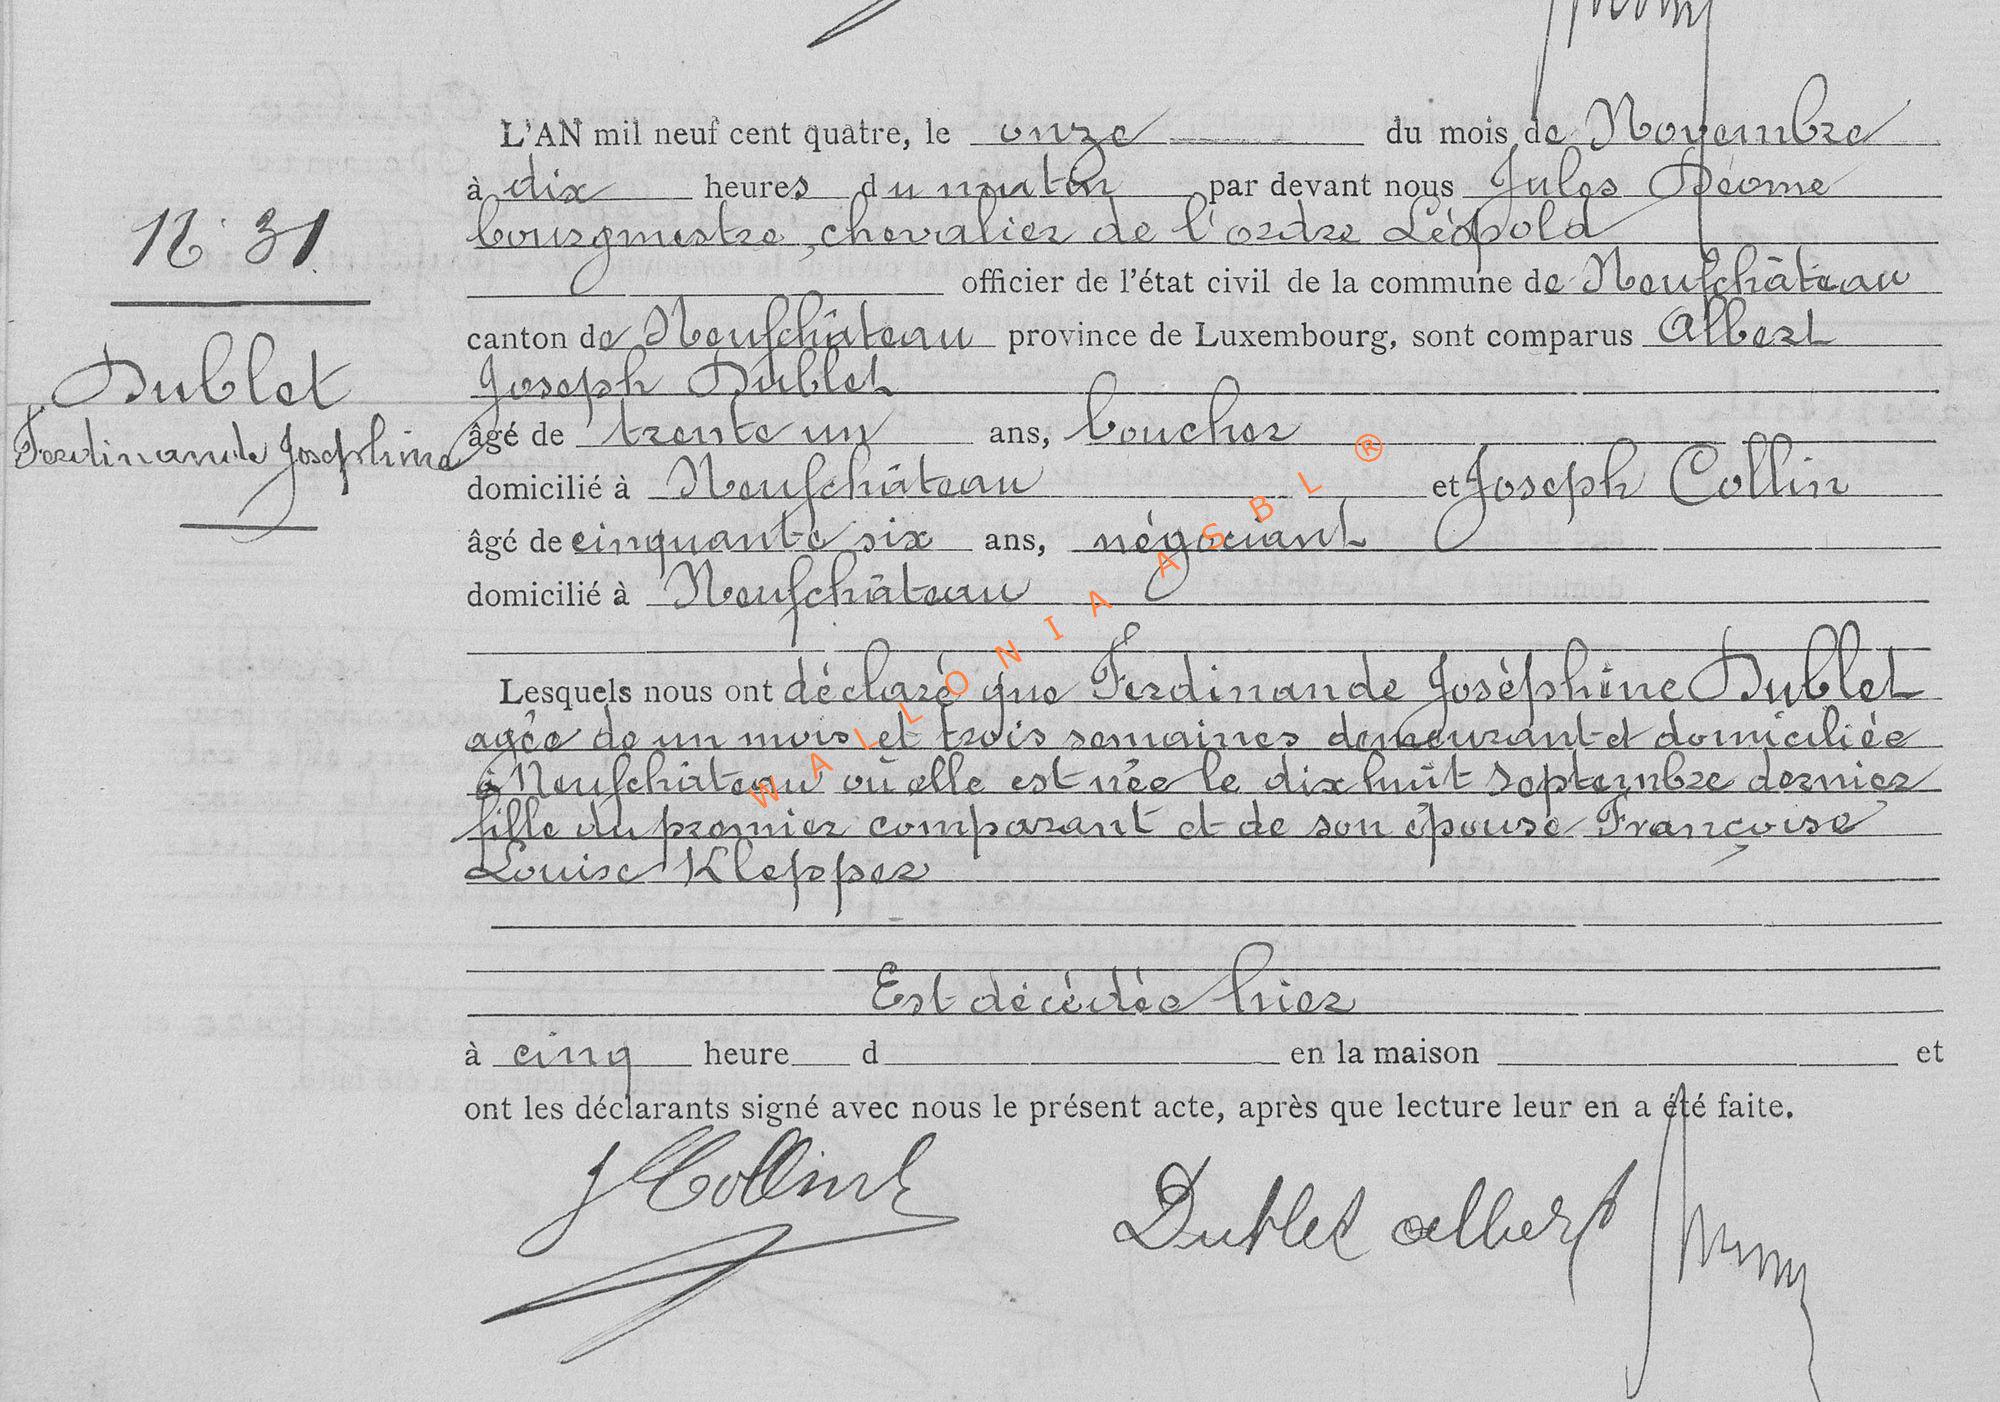 L'AN mil neuf cent quatre, le onze du mois de Novembre
à dix heures du matin par devant nous Jules Déome
bourgmestre, chevalier de l'ordre Léopold
officier de l'état civil de la commune de Neufchâteau
canton de Neufchâteau province de Luxembourg, sont comparus Albert
Joseph Dublet
âgé de trente un ans, boucher
domicilié à Neufchâteau et Joseph Collin
âgé de cinquante six ans, négociant
domicilié à Neufchâteau
N° 31
Dublet
Ferdinande Joséphine
Lesquels nous ont déclaré que Ferdinande Joséphine Dublet
agée de un mois et trois semaines demeurant et domiciliée
à Neufchâteau où elle est née le dix huit Septembre dernier
fille du premier comparant et de son épouse Françoise
Louise Klepper
Est décédée hier
à cinq heure d en la maison et
ont les déclarants signé avec nous le présent acte, après que lecture leur en a été faite.
J Collin
Dublet Albert
WALLONIA ASBL ®